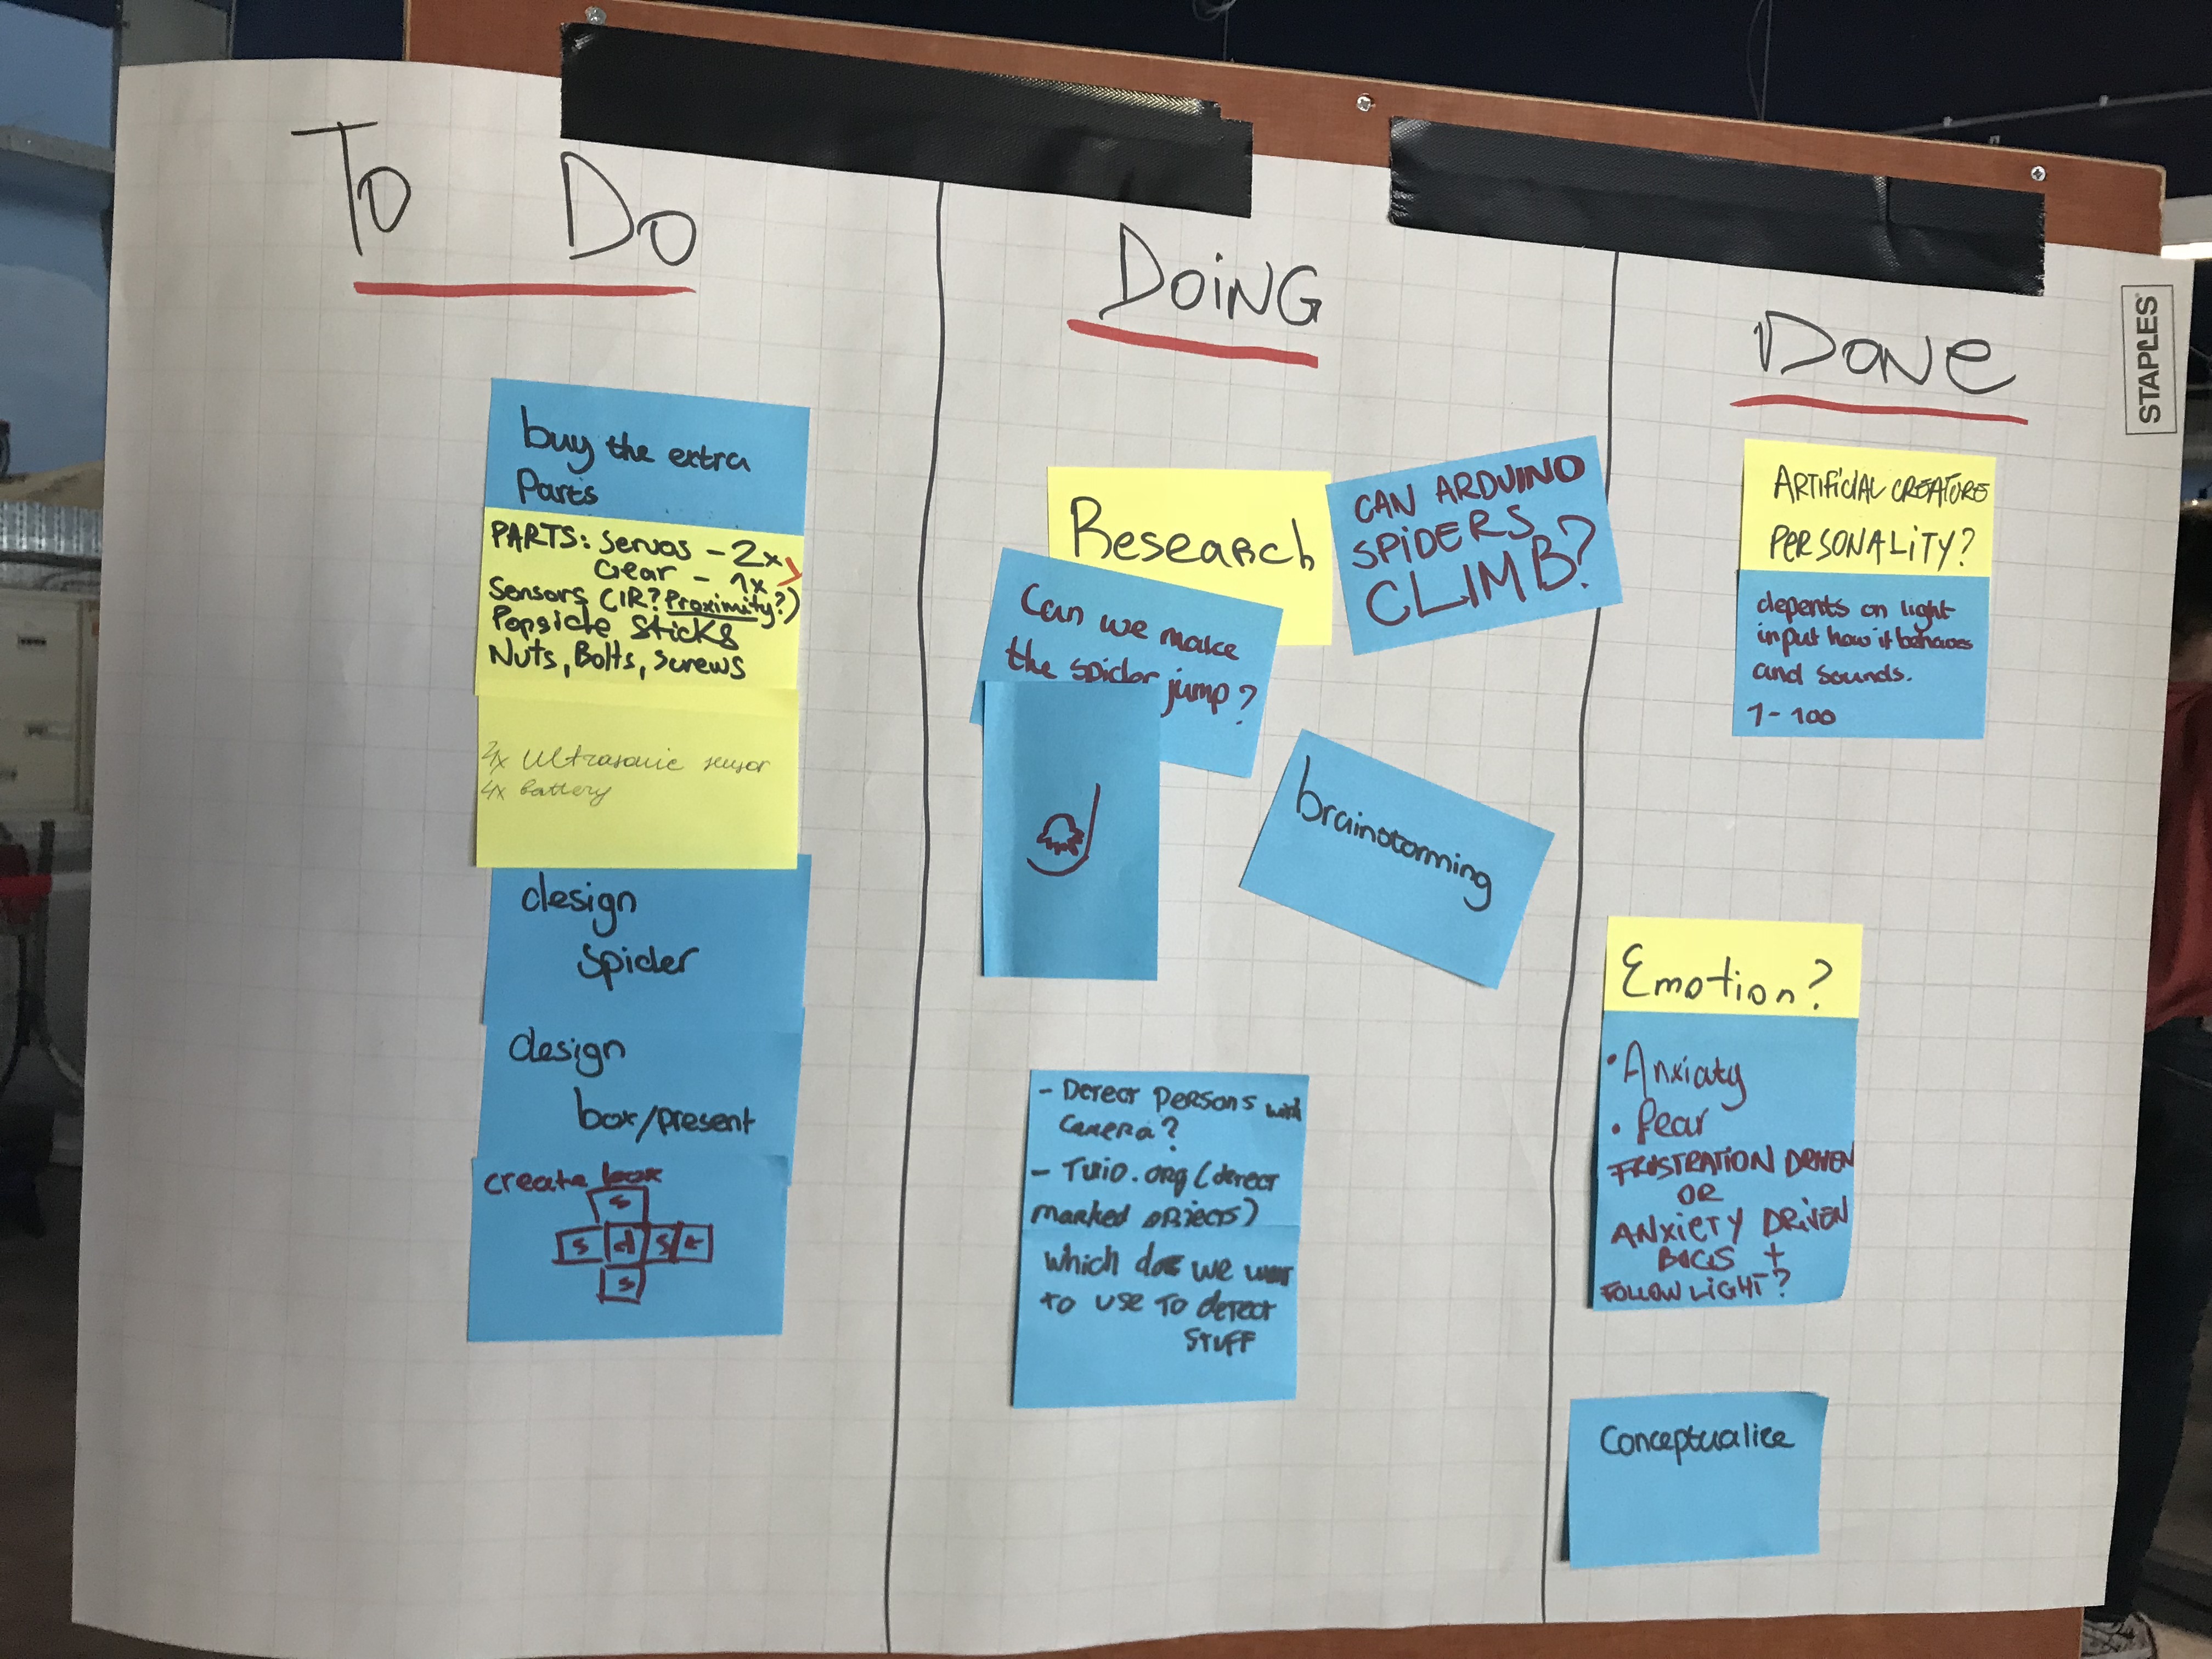 To Do
buy the extra
Parts
PARTS: Servos - 2x
Gear - 1x
Sensors (IR? Proximity?)
Popsicle sticks
Nuts, Bolts, Screws
4x Ultrasonic sensor
4x battery
design
spider
design
box/present
create box
s
s d s t
s
DOiNG
Research
CAN ARDUINO
SPiDERS
CLIMB?
Can we make
the spider jump?
brainstorming
- Detect persons with
camera?
- Tuio.org (detect
marked objects)
which does we want
to use to detect
stuff
DONe
ARTificiAL CREATURE
PERSONALiTY?
depents on light
input how it behaves
and sounds.
1-100
Emotion?
• Anxiaty
• fear
FRUSTRATION DRIVEN
OR
ANXIETY DRIVEN
FOLLOW LiGHT?
Conceptualice
STAPLES